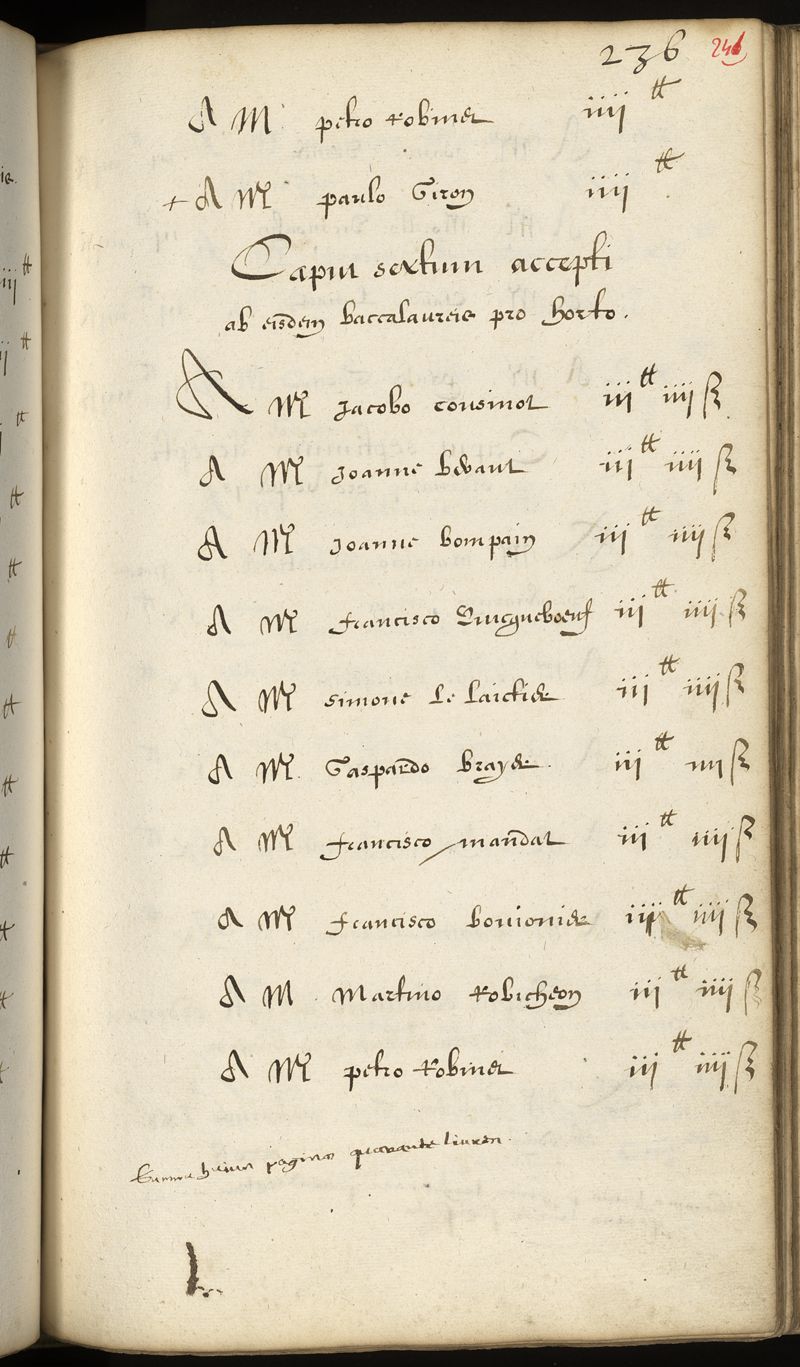 236 241
A M petro Robinet iiii tt
+ A Me paulo Giron iiii tt
Caput sextum accepti
ab eisdem baccalaureis pro horto.
A Me Jacobo cousinot iii tt iiii ß
A Me Joanne bevaut iii tt iiii ß
A Me Joanne bompain iii tt iiii ß
A Me Francisco Quicqueboeuf iii tt iiii ß
A Me simone Le Laictier iii tt iiii ß
A Me. Gaspardo brayer iii tt iiii ß
A Me Francisco mandat iii tt iiii ß
A Me Francisco bouionier iii tt iiii ß
A M. Martino Robicheon iii tt iiii ß
A Me petro Robinet iii tt iiii ß
Summa huius paginae quarante livres.